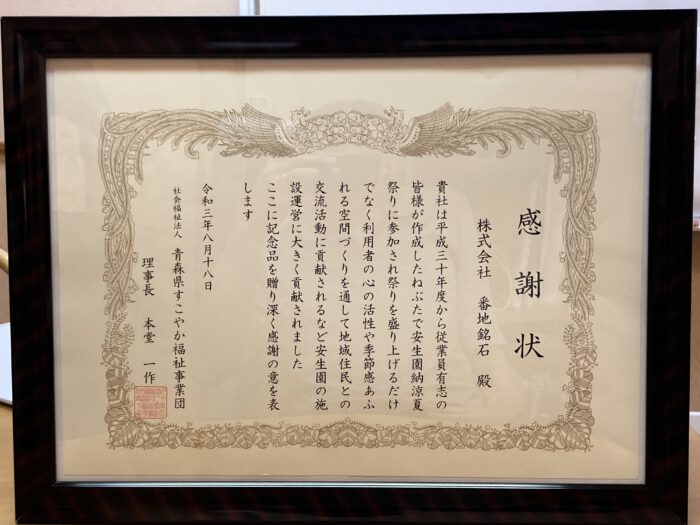 感謝状
株式会社 番地銘石 殿
貴社は平成三十年度から従業員有志の
皆様が作成したねぶたで安生園納涼夏
祭りに参加され祭りを盛り上げるだけ
でなく利用者の心の活性や季節感あふ
れる空間づくりを通して地域住民との
交流活動に貢献されるなど安生園の施
設運営に大きく貢献されました
ここに記念品を贈り深く感謝の意を表
します
令和三年八月十八日
社会福祉法人 青森県すこやか福祉事業団
理事長 本堂 一作